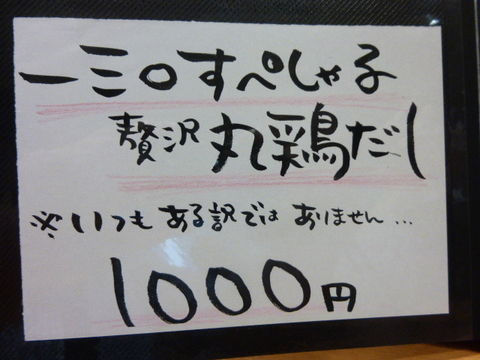 一三〇すぺしゃる
贅沢 丸鶏だし
※いつもある訳ではありません…
1000円